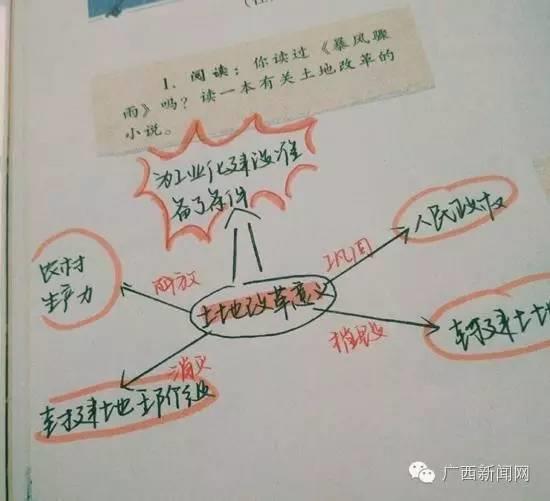 1. 阅读：你读过《暴风骤
雨》吗？读一本有关土地改革的
小说。
为工业化建设准
备了条件
人民政权
巩固
农村
生产力
解放
土地改革意义
摧毁
封建土
消灭
封建土地
广西新闻网